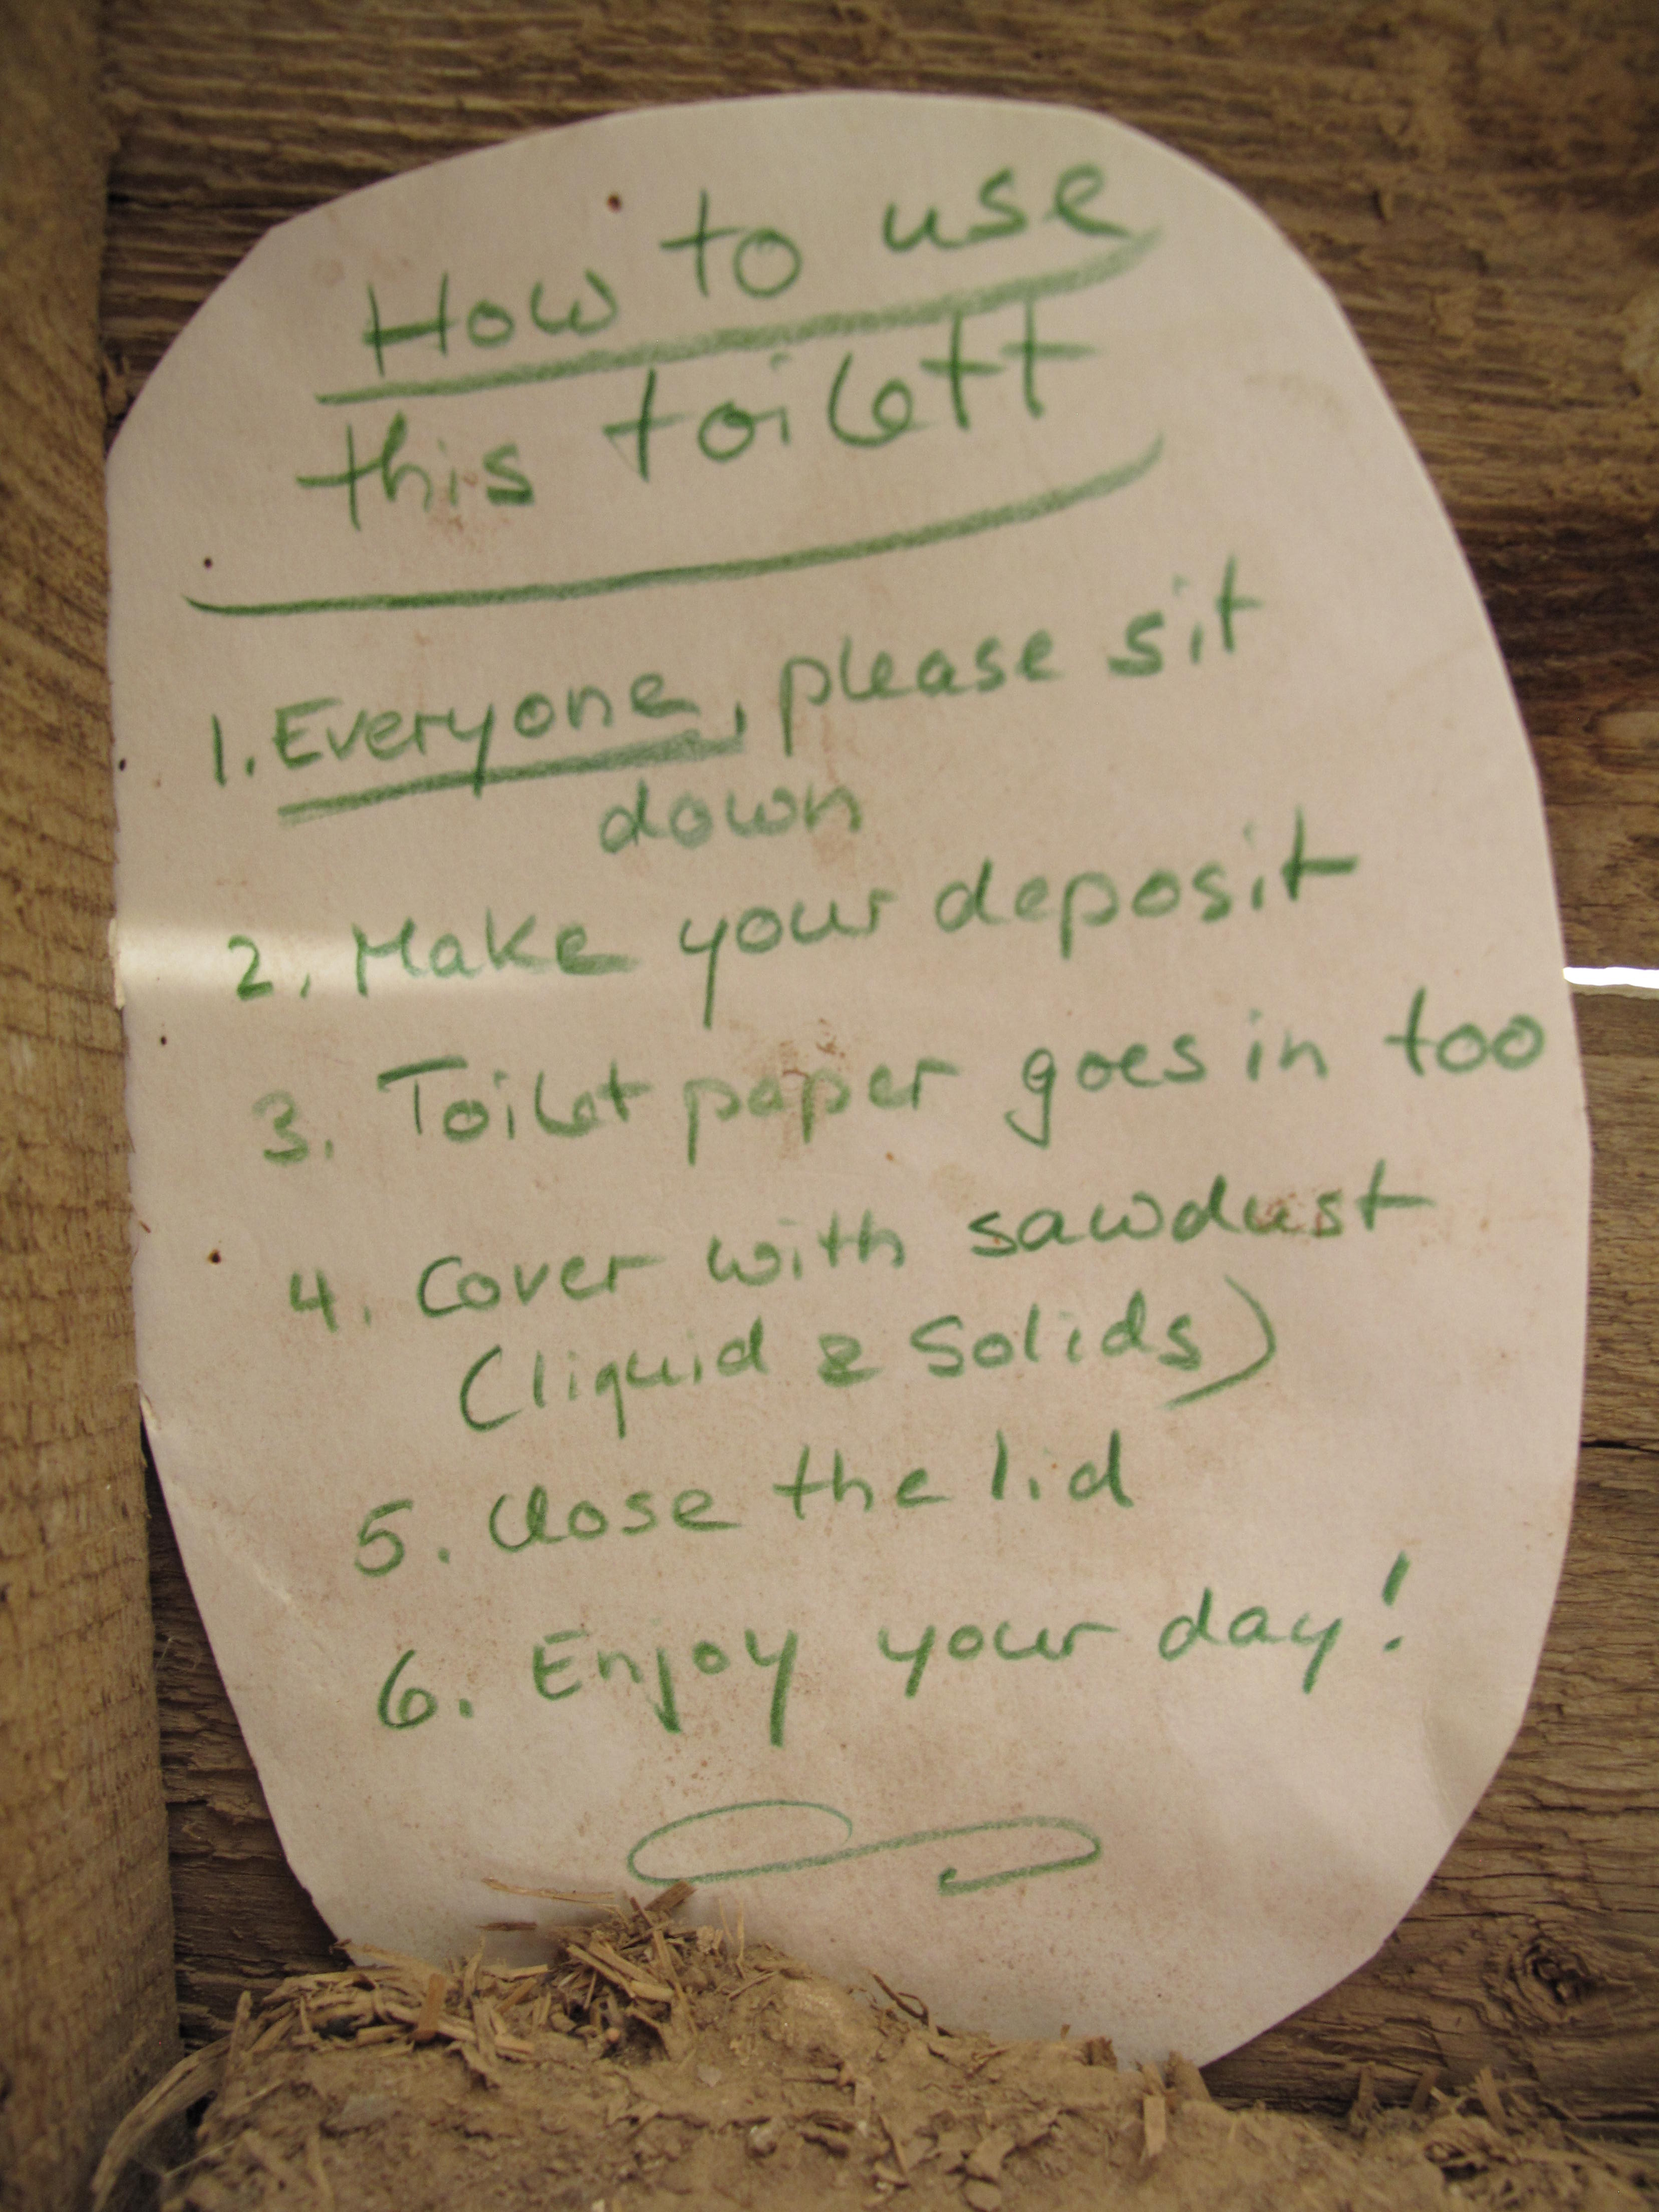 How to use
this toilett
1. Everyone, please sit
down
2. Make your deposit
3. Toilet paper goes in too
4. Cover with sawdust
(liquid & Solids)
5. Close the lid
6. Enjoy your day!